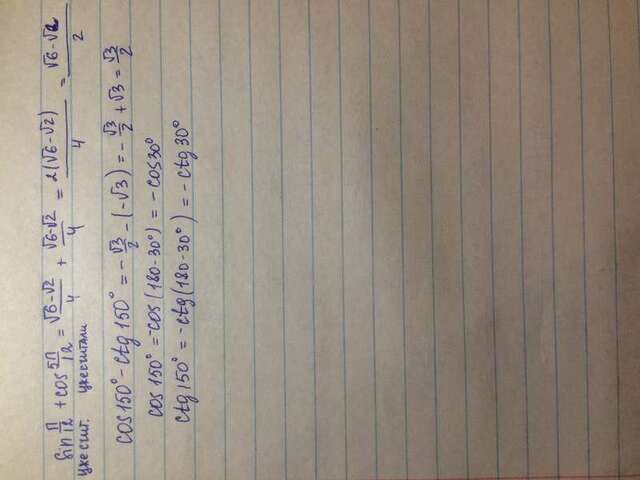 sin π/12 + cos 5π/12 = √6-√2/4 + √6-√2/4 = 2(√6-√2)/4 = √6-√2/2
уже счит. уже считали
cos150° - ctg150° = -√3/2 - (-√3) = -√3/2 + √3 = √3/2
cos150° = -cos(180-30°) = -cos30°
ctg150° = -ctg(180-30°) = -ctg30°